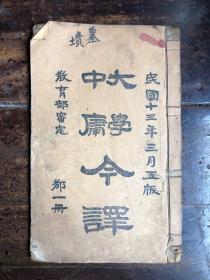 民國十三年三月五版
大學
中庸
今譯
教育部審定
都一冊
墓
墳